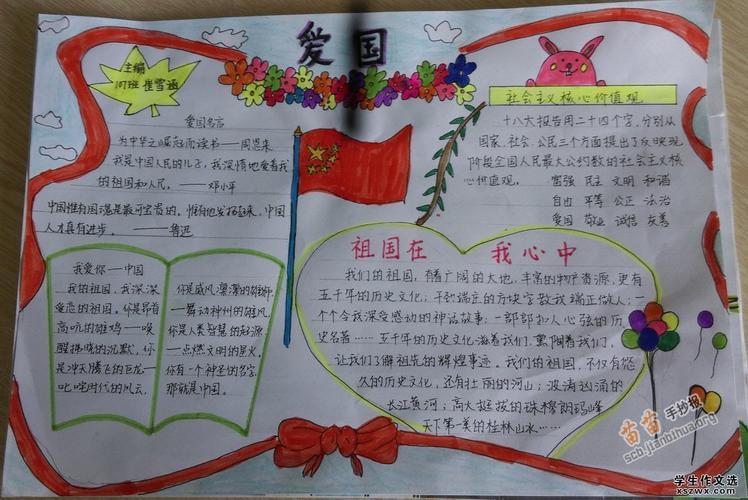 爱国
主编
107班 崔雪涵
爱国名言
为中华之崛起而读书——周恩来
我是中国人民的儿子,我深情地爱着我
的祖国和人民。——邓小平
中国惟有国魂是最可宝贵的。惟有他发扬起来,中国
人才真有进步。——鲁迅
我爱你—中国
我的祖国,我深深
爱恋的祖国。你是昂首
高吭的雄鸡—唤
醒拂晓的沉默,你
是冲天腾飞的巨龙—
叱咤时代的风云,
你是威风凛凛的雄狮
—舞动神州的雄风,
你是人类智慧的起源
—点燃文明的星火。
你有一个神圣的名字,
那就是中国。
社会主义核心价值观
十八大报告用二十四个字,分别从
国家、社会、公民三个方面提出了反映现
阶段全国人民最大公约数的社会主义核
心价值观。 富强 民主 文明 和谐
自由 平等 公正 法治
爱国 敬业 诚信 友善
祖国在 我心中
我们的祖国,有着广阔的大地,丰富的物产资源,更有
五千年的历史文化;千列端庄的方块字教我端正做人;一
个个令我深受感动的神话故事;一部部扣人心弦的历
史名著……五千年的历史文化滋着我们,熏陶着我们,
让我们了解祖先的辉煌事迹。我们的祖国,不仅有悠
久的历史文化,还有壮丽的河山;波涛汹涌的
长江黄河;高大挺拔的珠穆朗玛峰
天下第一美的桂林山水……
苗苗手抄报
scb.jianbihua.org
学生作文选
xszwx.cn